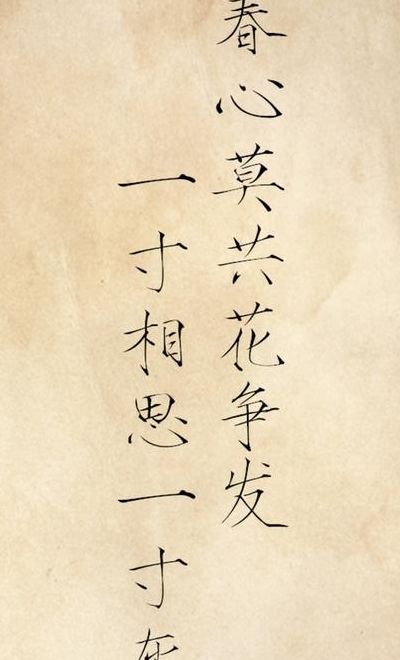 春心莫共花争发
一寸相思一寸灰